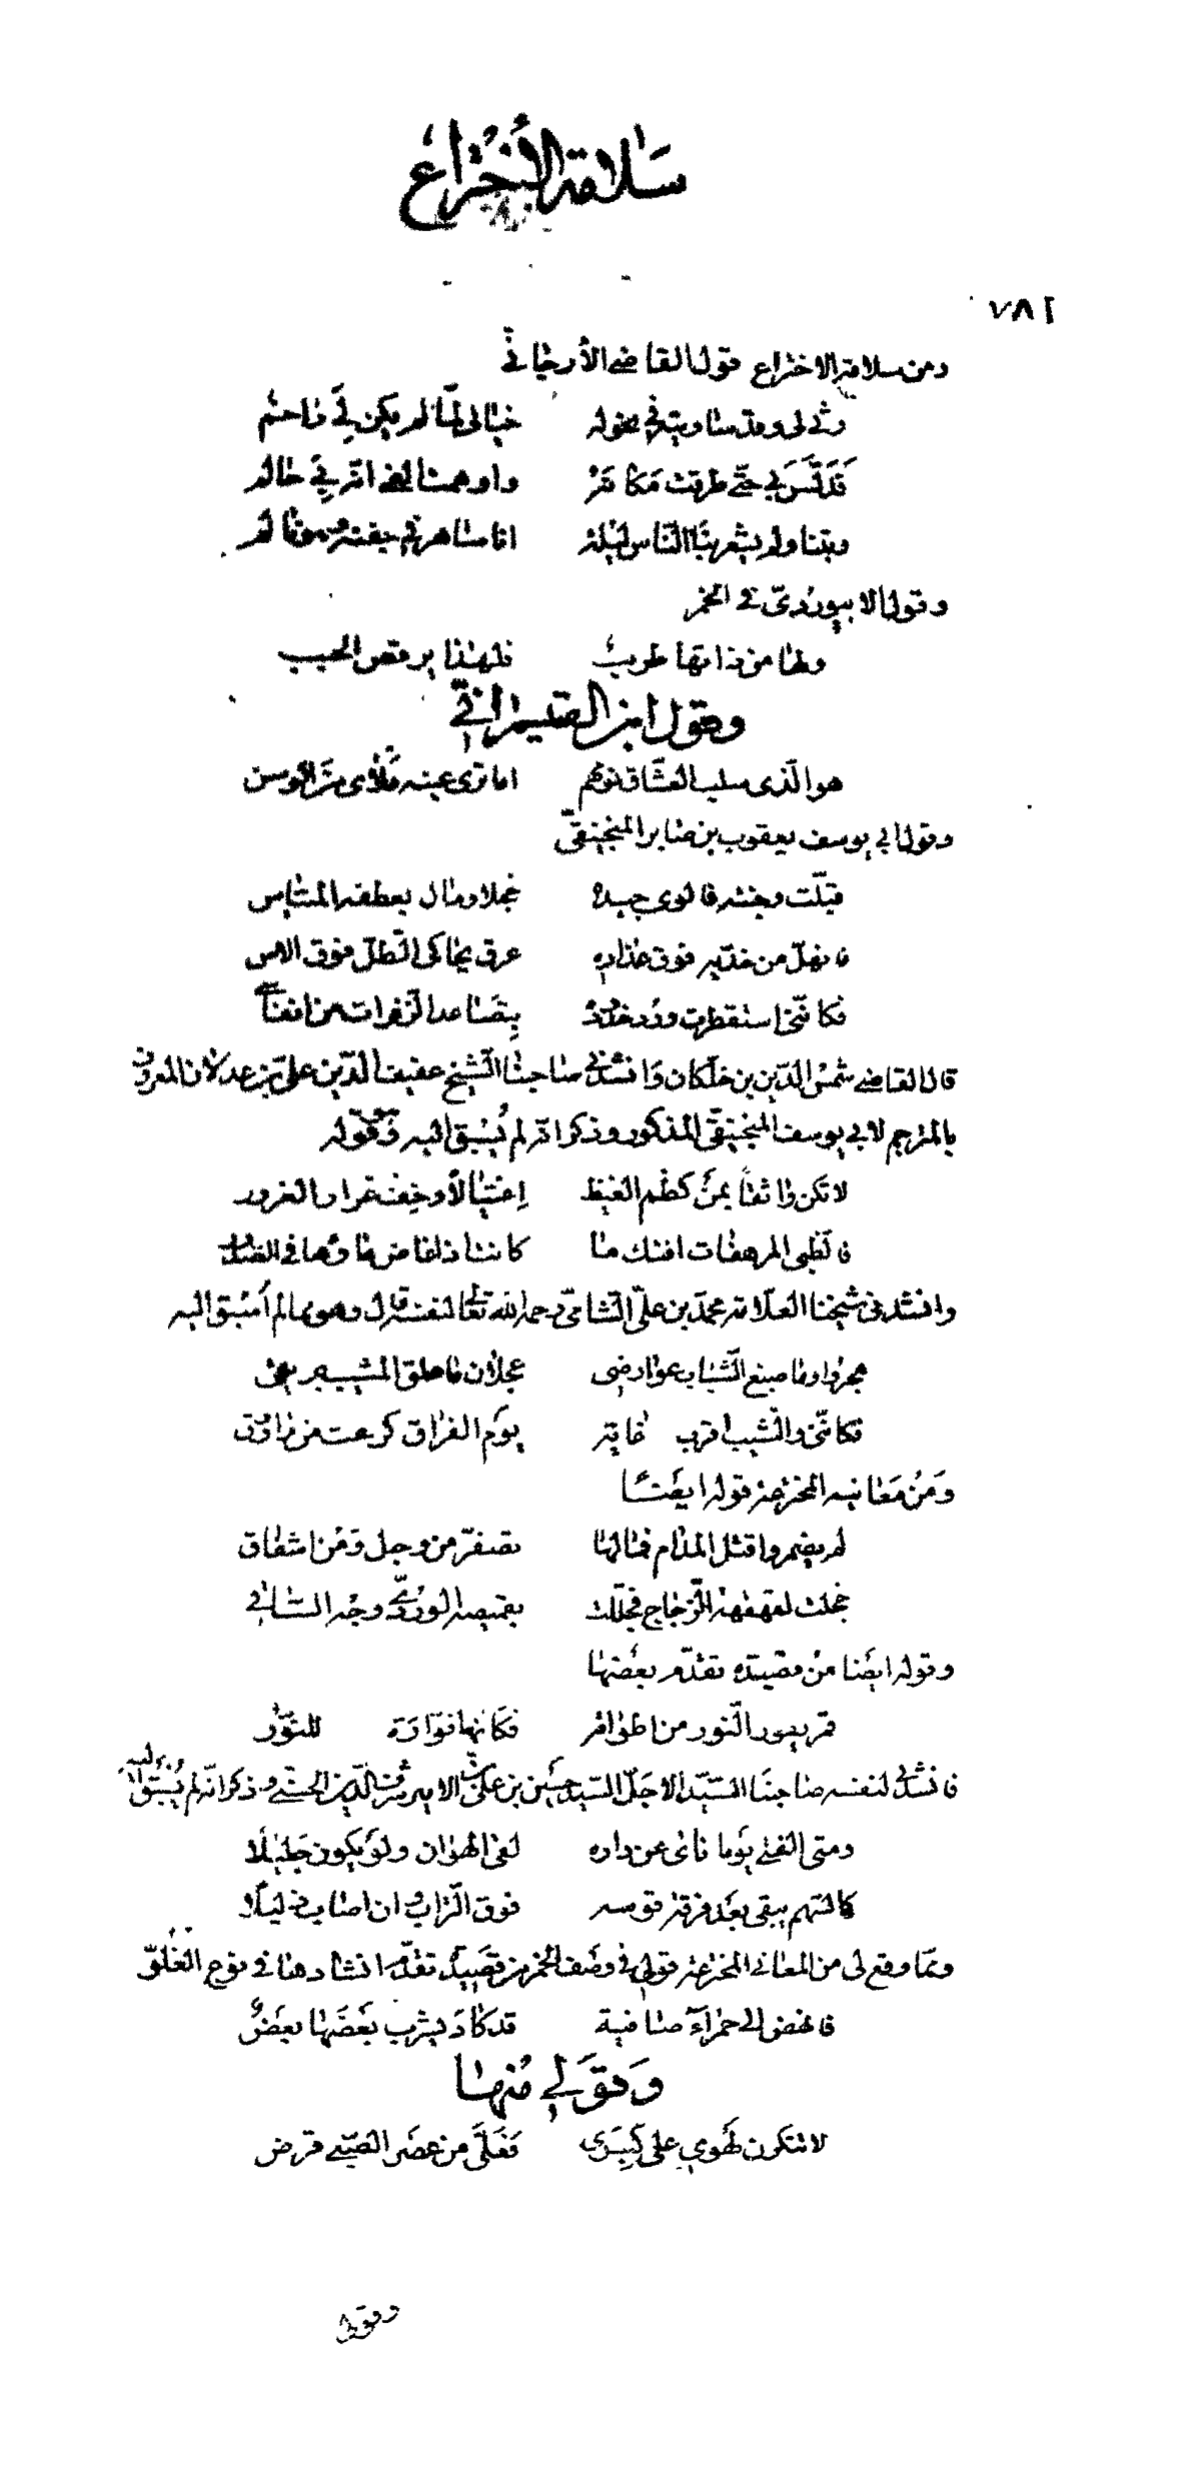 سلامة الاختراع
٧٨٢
ومن سلامة الاختراع قول القاضي الأرجاني
رثى لي وقد ساويته في نحوله خيالي لمّا لم يكن لي راحم
فدلّس بي حتّى طرقت مكانه واوهمت الفي انّه بي حالم
وبتنا ولم يشعر بنا النّاس ليلة انا ساهر في جفنه وهو نائم
وقول الابيوردىّ في الخمر
ولها من ذاتها طرب فلهذا يرقص الحبب
وقول ابن القيسراني
هو الّذى سلب العشّاق نومهم اما ترى عينه ملأى من الوسن
وقول ابي يوسف يعقوب بن صابر المنجنيقيّ
قبّلت وجنته فالوى جيده خجلا ومال بعطفه الميّاس
فانهلّ من خدّيه فوق عذاره عرق يحاكي الطّلّ فوق الاس
فكانّني استقطرت ورد خدوده بتصاعد الزّفرات من انفاسي
قال القاضي شمس الدّين بن خلّكان وانشدني صاحبنا الشّيخ عفيف الدّين علي بن عدلان المعروف
بالمترجم لابي يوسف المنجنيقيّ المذكور وذكر انّه لم يُسبق اليه وهو قوله
لا تكن واثقاً بمن كظم الغيظ اغتيالاً وخف غرار الغرور
فالظّبى المرهفات افتك ما كانت اذا غاض ماؤها في الصّدور
وانشدني شيخنا العلّامة محمّد بن عليّ الشّاميّ رحمه الله تعالى لنفسه قال وهو ممّا لم اُسبق اليه
هجروا وما صبغ الشّباب عوارضي عجلان ما علق المشيب
فكانّني والشّيب اقرب غاية يوم الفراق كرعت من راووق
ومن معانيه المخترعة قوله ايضاً
لم يضمروا قتل المدام فما لها تصفرّ من وجل ومن اشفاق
خجلت لقهقهة الزّجاج فجلّلت بقميصه الورديّ وجه السّاقي
وقوله ايضا من قصيدة تقدّم بعضها
قمر يمور النّور من اطرافه فكانها فوّارة للنّور
فانشدني لنفسه صاحبنا السّيّد الاجلّ السّيد حسين بن علي بن الامير شرف الدّين الحسني وذكر انّه لم يُسبق اليه
ومتى الفتى يوما نائ عن داره لقي الهوان ولو يكون جليلا
كالسّهم يبقى بعد فرقة قوسه فوق التّراب وان اصاب ذليلا
وممّا وقع لي من المعاني المخترعة قولي في وصف الخمر من قصيدة تقدّم انشادها في نوع الغلوّ
فانهض الى حمراء صافية قد كاد يشرب بعضها بعض
وقولي منها
لا تنكرن لهوي على كبرى فعلّي من عصر الصّبى قرض
وقولي